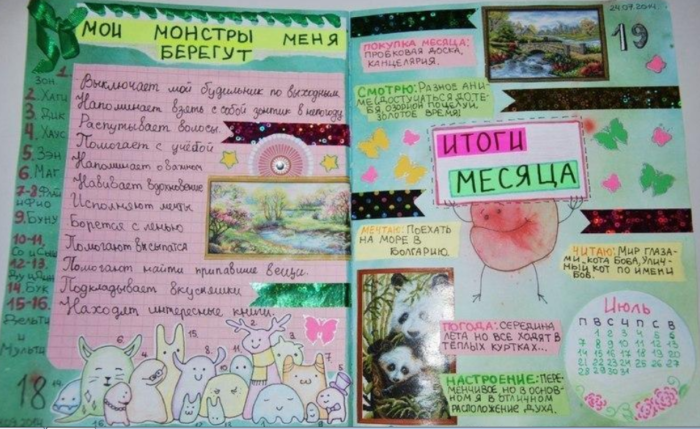 МОИ МОНСТРЫ МЕНЯ
БЕРЕГУТ
1.
Зон
2. Хати
3. Дик
4. Хаус
5. Зэн
6. Маг
7-8
и Фио
9. Буну
10-11.
12-13.
14. Бук
15-16.
Дельти
и
Мульти
18
Выключает мой будильник по выходным
Напоминает взять с собой зонтик в непогоду
Распутывает волосы.
Помогает с учёбой
Напоминает о важном
Навивает вдохновение
Исполняют мечты
Борется с ленью
Помогают выспатся
Помогают найти пропавшие вещи
Подкладывает вкусняшки
Находят интересные книги.
24.07.2014.
19
ПОКУПКА МЕСЯЦА:
ПРОБКОВАЯ ДОСКА,
КАНЦЕЛЯРИЯ.
СМОТРЮ: РАЗНОЕ АНИ-
МЕ(ДОСТУЧАТЬСЯ ДО ТЕ-
БЯ, ОЗОРНОЙ ПОЦЕЛУЙ,
ЗОЛОТОЕ ВРЕМЯ)
ИТОГИ
МЕСЯЦА
МЕЧТАЮ: ПОЕХАТЬ
НА МОРЕ В
БОЛГАРИЮ.
ЧИТАЮ: МИР ГЛАЗА-
МИ КОТА БОБА, УЛИЧ-
НЫЙ КОТ ПО ИМЕНИ
БОБ.
ПОГОДА: СЕРЕДИНА
ЛЕТА НО ВСЕ ХОДЯТ В
ТЁПЛЫХ КУРТКАХ...
НАСТРОЕНИЕ: ПЕРЕ-
МЕНЧИВОЕ НО В ОСНОВ-
НОМ Я В ОТЛИЧНОМ
РАСПОЛОЖЕНИЕ ДУХА.
Июль
П В С Ч П С В
1 2 3 4 5 6
7 8 9 10 11 12 13
14 15 16 17 18 19 20
21 22 23 24 25 26 27
28 29 30 31